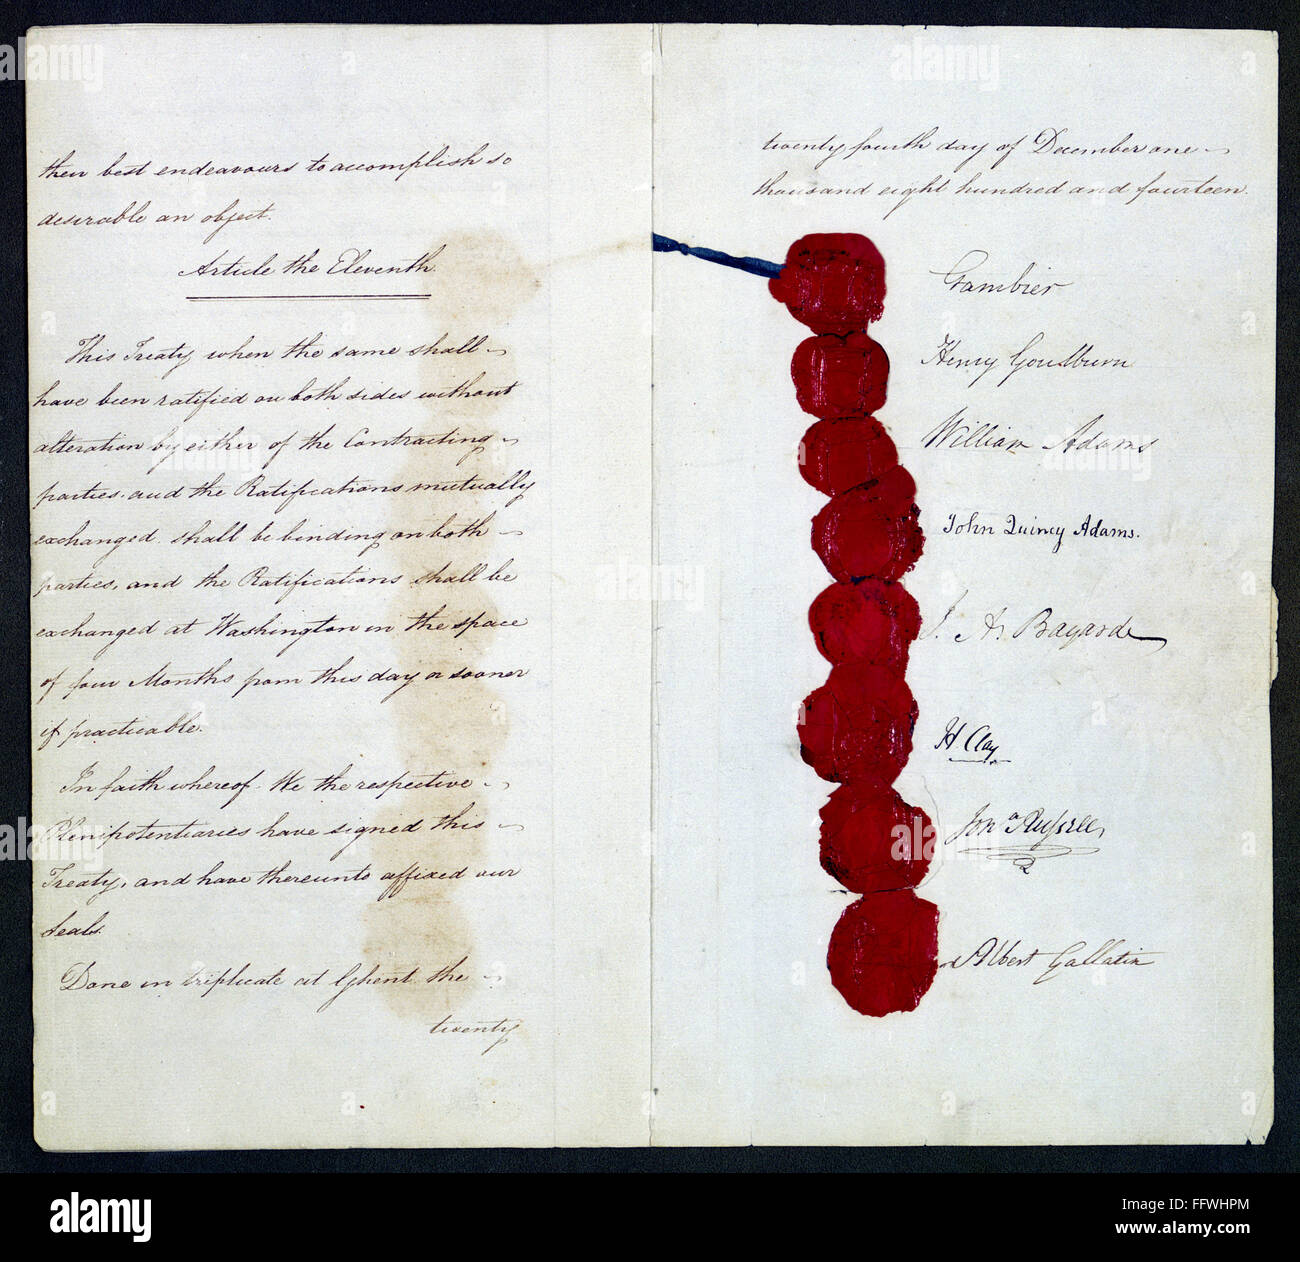 their best endeavours to accomplish so
desirable an object.
Article the Eleventh.
This Treaty when the same shall
have been ratified on both sides without
alteration by either of the Contracting
parties. and the Ratifications mutually
exchanged. shall be binding on both
parties, and the Ratifications shall be
exchanged at Washington in the space
of four Months from this day or sooner
if practicable.
In faith whereof. We the respective
Plenipotentiaries have signed this
Treaty, and have thereunto affixed our
Seals.
Done in triplicate at Ghent the
twenty
twenty fourth day of December one
thousand eight hundred and fourteen.
Gambier
Henry Goulburn
William Adams
John Quincy Adams.
J. A. Bayard
H. Clay
Jonᵃ Russell
Albert Gallatin
alamy
alamy
alamy
alamy
alamy
alamy
alamy
alamy
Image ID: FFWHPM
www.alamy.com